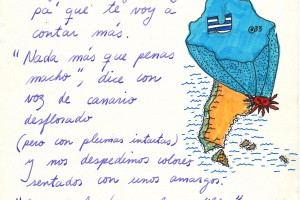 pa' que te voy a
contar más.
"Nada más que penas
macho", dice con
voz de canario
desflorado
(pero con plumas intactas)
y nos despedimos colores
sentados con unos amargos.
@83